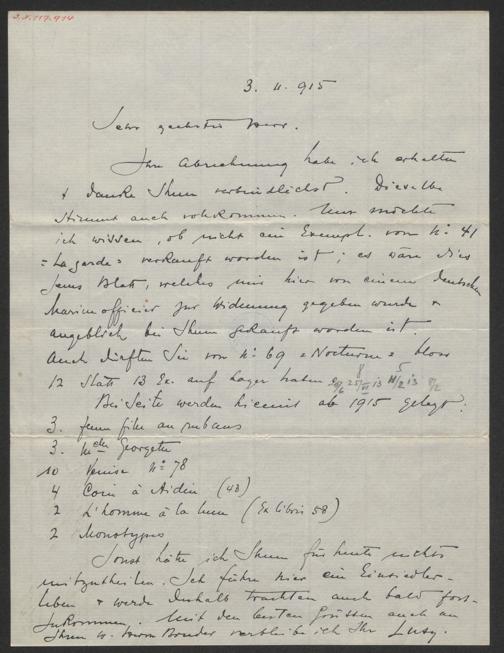 J.N. 117.914
3. II. 915
Sehr geehrter Herr.
Ihre Abrechnung habe ich erhalten
& danke Ihnen verbindlichst. Dieselbe
stimmt auch vollkommen. Nur möchte
ich wissen, ob nicht ein Exempl. vom No. 41
=La garde= verkauft worden ist; es wäre dies
jenes Blatt, welches mir hier von einem deutschen
Marineofficier zur Widmung gegeben wurde &
angeblich bei Ihnen gekauft worden ist.
Auch dürften Sie von No. 69 =Nocturne= bloss
12 statt 13 Ex. auf Lager haben
Bei Seite werden hiemit ab 1915 gelegt:
3. jeune fille au rubans
3. Mlle Georgette
10 Venise No. 78
4 Coin à Aidin (43)
2 L'homme à la lune (Ex libris 58)
2 Monotypes
Sonst hätte ich Ihnen für heute nichts
mitzutheilen. Ich führe hier ein Einsiedler-
leben & werde deshalb trachten auch bald fort-
zukommen. Mit den besten Grüssen auch an
Ihren H. Herrn Bruder verbleibe ich Ihr